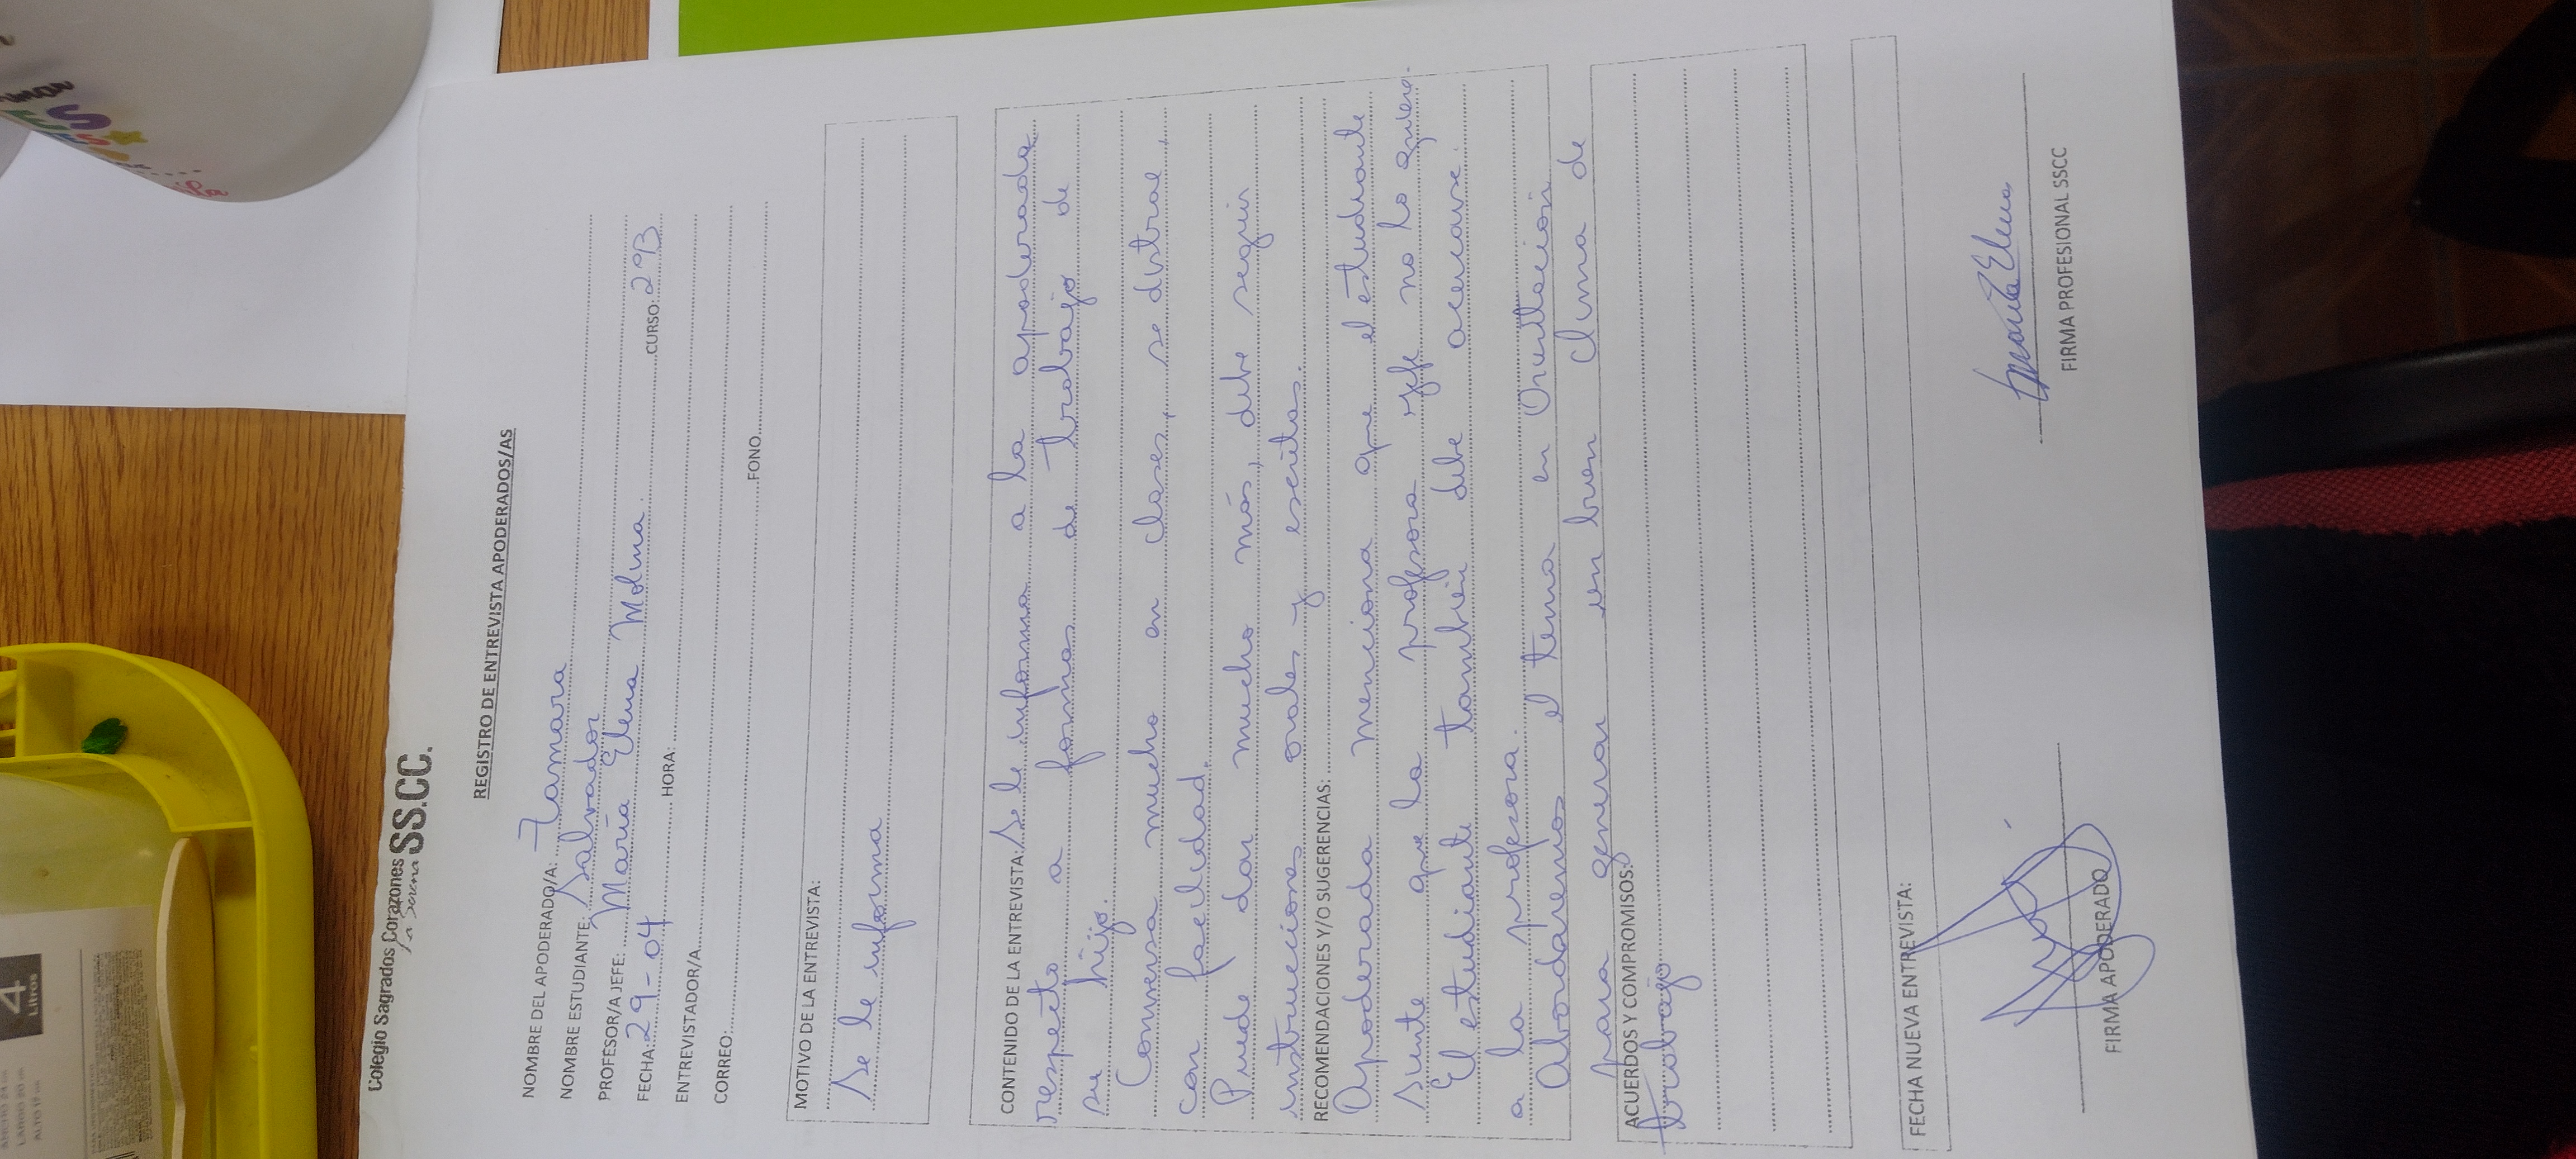 Colegio Sagrados Corazones
La Serena
SS.CC.
REGISTRO DE ENTREVISTA APODERADOS/AS
NOMBRE DEL APODERADO/A: Tamara
NOMBRE ESTUDIANTE: Salvador
PROFESOR/A JEFE: María Elena Molina.
FECHA: 29-04 CURSO: 2ºB
HORA:
ENTREVISTADOR/A
CORREO: FONO
MOTIVO DE LA ENTREVISTA:
Se le informa
CONTENIDO DE LA ENTREVISTA: Se le informa a la apoderada
respecto a formas de trabajo de
su hijo.
Conversa mucho en clases, se distrae,
con facilidad.
Puede dar mucho más, debe seguir
instrucciones orales y escritas.
RECOMENDACIONES Y/O SUGERENCIAS:
Apoderada menciona que el estudiante
siente que la profesora jefe no lo quiere.
El estudiante también debe acercarse.
a la profesora.
Abordaremos el tema en Orientación
para generar un buen clima de
ACUERDOS Y COMPROMISOS:
trabajo
FECHA NUEVA ENTREVISTA:
María Elena
FIRMA APODERADO
FIRMA PROFESIONAL SSCC
4
Litros
LARGO 20 cm
ALTO 17 cm